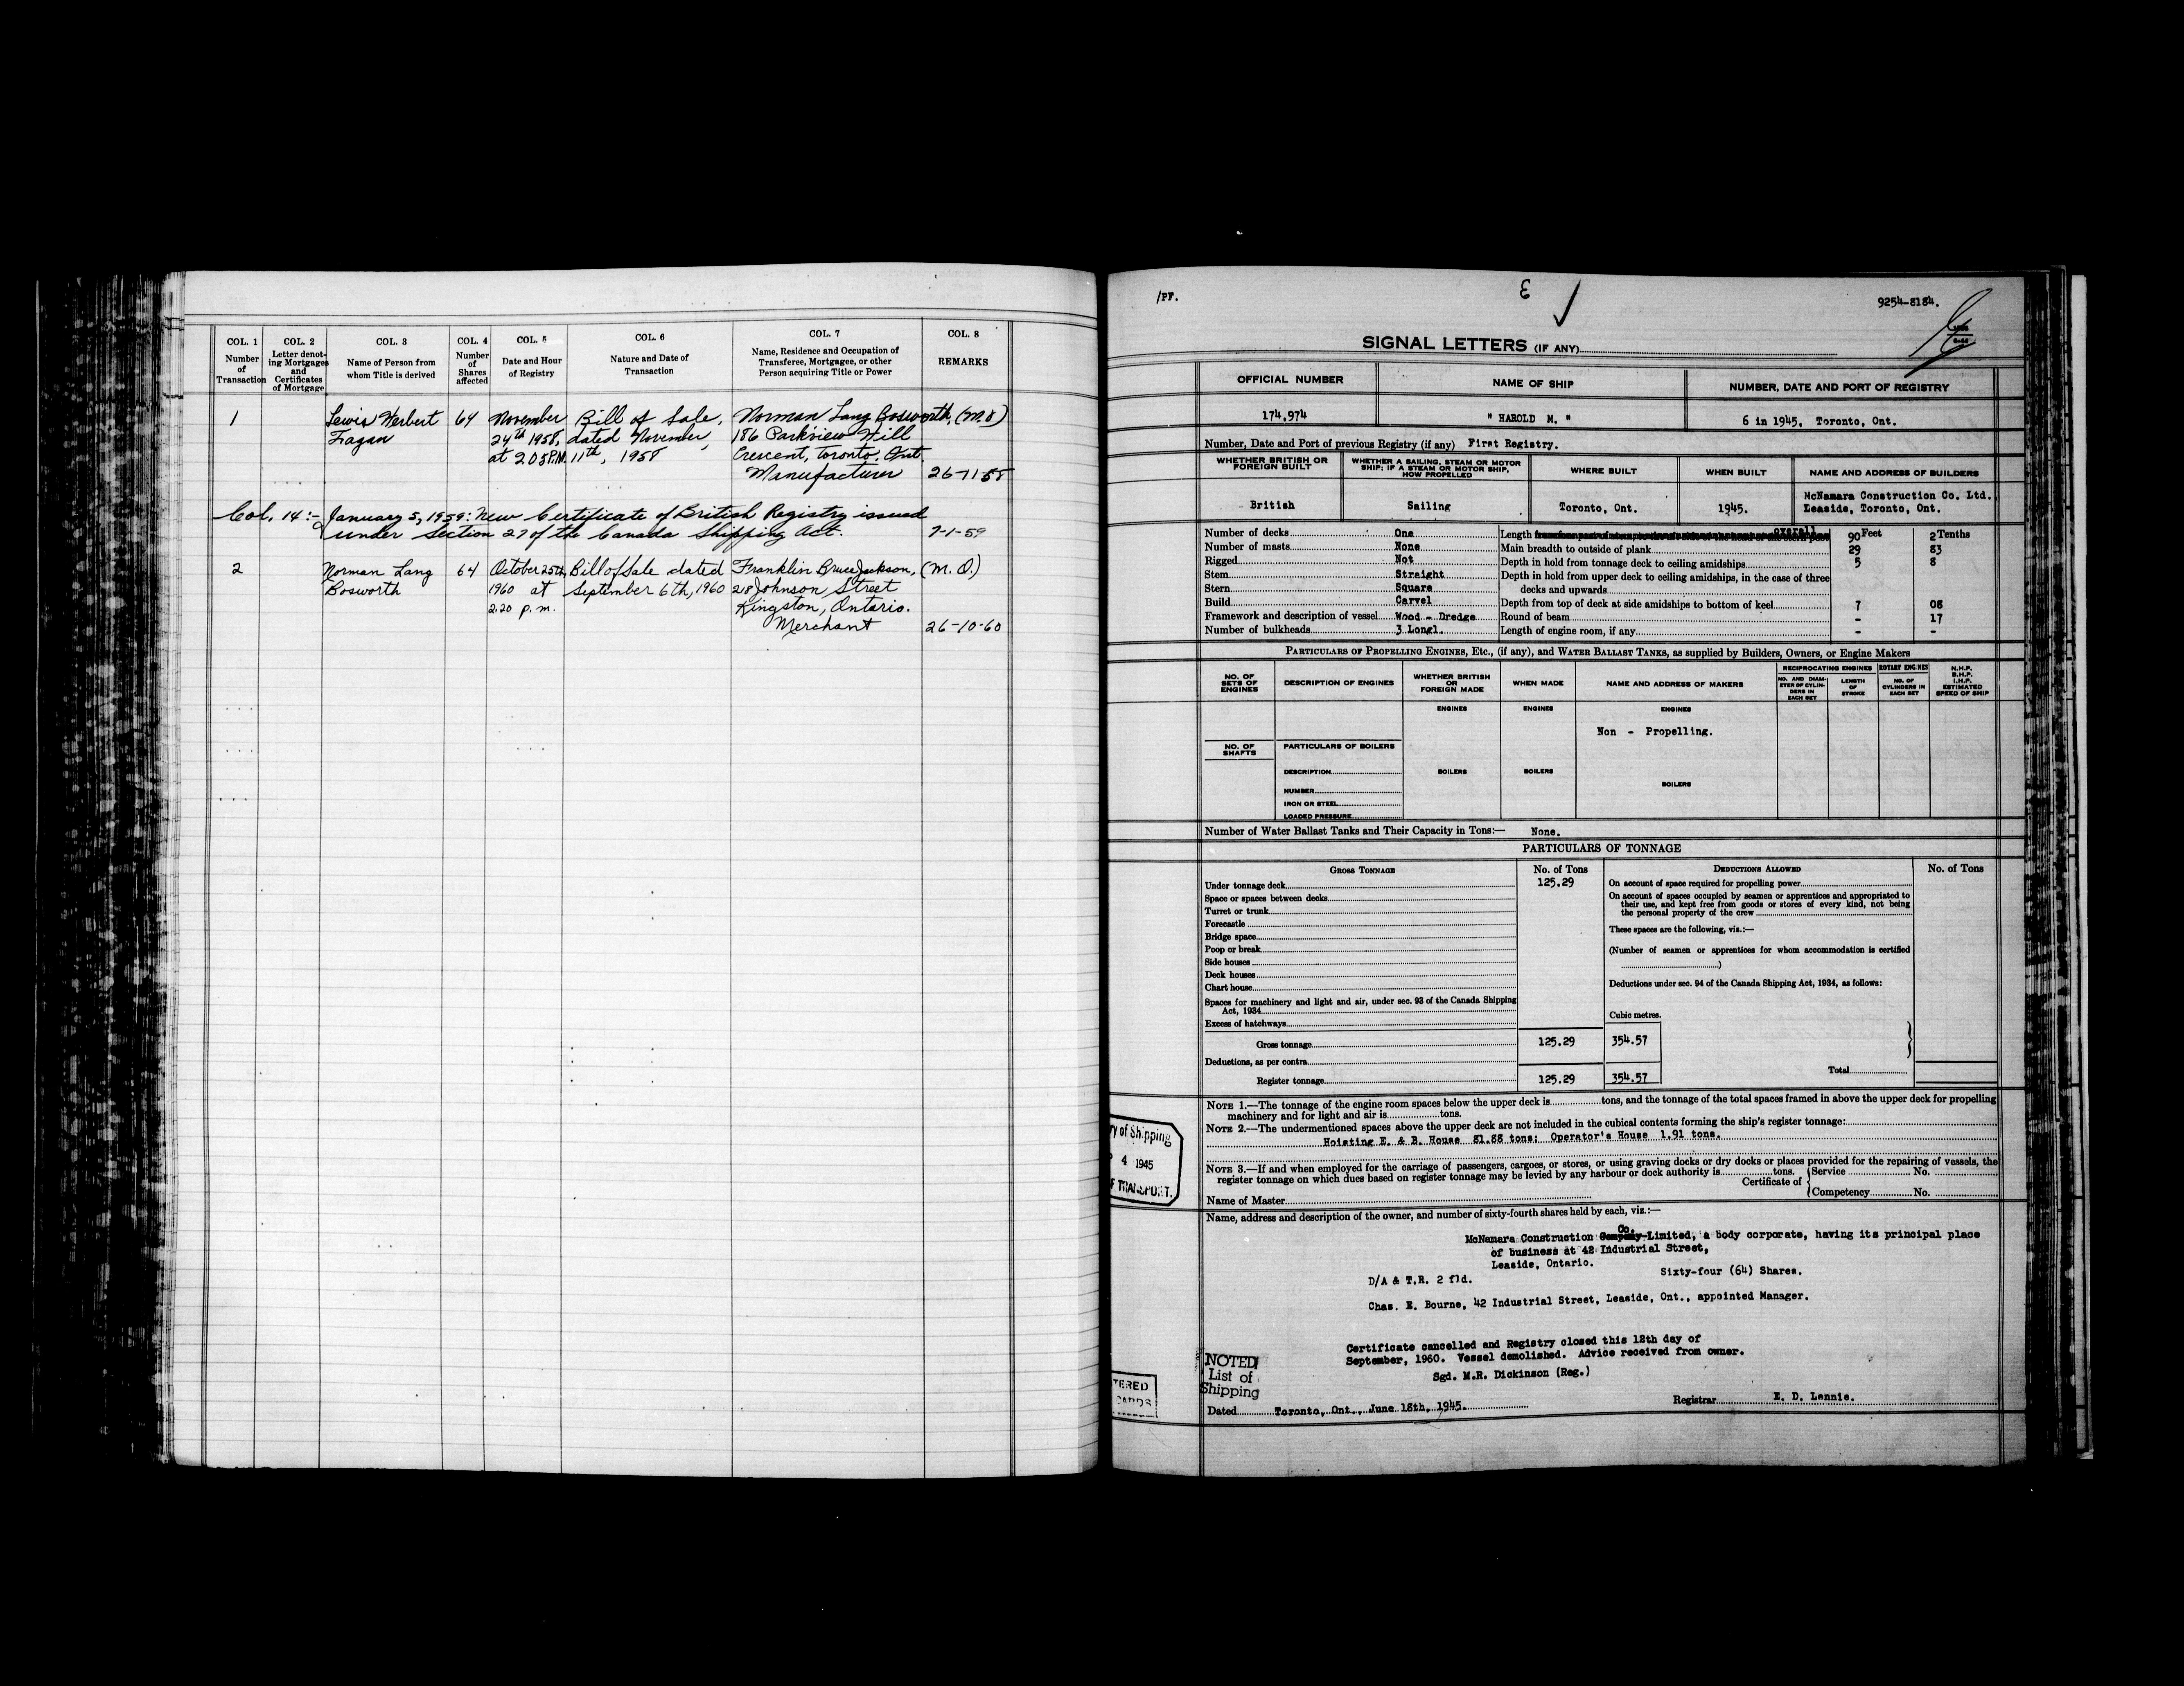 COL. 1
Number
of
Transaction
COL. 2
Letter denot-
ing Mortgages
and
Certificates
of Mortgage
COL. 3
Name of Person from
whom Title is derived
COL. 4
Number
of
Shares
affected
COL. 5
Date and Hour
of Registry
COL. 6
Nature and Date of
Transaction
COL. 7
Name, Residence and Occupation of
Transferee, Mortgagee, or other
Person acquiring Title or Power
COL. 8
REMARKS
1 Lewis Herbert 64 November Bill of Sale, Norman Lang Bosworth, (M.O)
Fagan 24th 1958, dated November 186 Parkview Hill
at 2.05 P.M. 11th, 1958 Crescent, Toronto, Ont.
Manufacturer 26-11-58
Col. 14:- January 5, 1959: New Certificate of British Registry issued
under Section 27 of the Canada Shipping Act. 7-1-59
2 Norman Lang 64 October 25th, Bill of Sale dated Franklin Bruce Jackson, (M.O.)
Bosworth 1960 at September 6th, 1960 28 Johnson Street
2.20 p.m. Kingston, Ontario.
Merchant 26-10-60
/PF.
9254-8184.
SIGNAL LETTERS (IF ANY)
OFFICIAL NUMBER
NAME OF SHIP
NUMBER, DATE AND PORT OF REGISTRY
174,974
" HAROLD M. "
6 in 1945, Toronto, Ont.
Number, Date and Port of previous Registry (if any) First Registry.
WHETHER BRITISH OR
FOREIGN BUILT
WHETHER A SAILING, STEAM OR MOTOR
SHIP; IF A STEAM OR MOTOR SHIP,
HOW PROPELLED
WHERE BUILT
WHEN BUILT
NAME AND ADDRESS OF BUILDERS
British
Sailing
Toronto, Ont.
1945.
McNamara Construction Co. Ltd.
Leaside, Toronto, Ont.
Number of decks One
Number of masts None
Rigged Not
Stem Straight
Stern Square
Build Carvel
Framework and description of vessel Wood - Dredge
Number of bulkheads 3 Longl.
Feet Tenths
Length overall 90 2
Main breadth to outside of plank 29 83
Depth in hold from tonnage deck to ceiling amidships 5 8
Depth in hold from upper deck to ceiling amidships, in the case of three
decks and upwards
Depth from top of deck at side amidships to bottom of keel 7 08
Round of beam - 17
Length of engine room, if any - -
PARTICULARS OF PROPELLING ENGINES, ETC., (if any), and WATER BALLAST TANKS, as supplied by Builders, Owners, or Engine Makers
NO. OF
SETS OF
ENGINES
DESCRIPTION OF ENGINES
WHETHER BRITISH
OR
FOREIGN MADE
WHEN MADE
NAME AND ADDRESS OF MAKERS
RECIPROCATING ENGINES
NO. AND DIAM-
ETER OF CYLIN-
DERS IN
EACH SET
LENGTH
OF
STROKE
ROTARY ENGINES
NO. OF
CYLINDERS IN
EACH SET
N.H.P.
B.H.P.
I.H.P.
ESTIMATED
SPEED OF SHIP
ENGINES
ENGINES
ENGINES
Non - Propelling.
NO. OF
SHAFTS
PARTICULARS OF BOILERS
DESCRIPTION
BOILERS
BOILERS
BOILERS
NUMBER
IRON OR STEEL
LOADED PRESSURE
Number of Water Ballast Tanks and Their Capacity in Tons:— None.
PARTICULARS OF TONNAGE
GROSS TONNAGE
No. of Tons
DEDUCTIONS ALLOWED
No. of Tons
Under tonnage deck 125.29
Space or spaces between decks
Turret or trunk
Forecastle
Bridge space
Poop or break
Side houses
Deck houses
Chart house
Spaces for machinery and light and air, under sec. 93 of the Canada Shipping
Act, 1934
Excess of hatchways
Gross tonnage 125.29 354.57
Deductions, as per contra
Register tonnage 125.29 354.57
On account of space required for propelling power
On account of spaces occupied by seamen or apprentices and appropriated to
their use, and kept free from goods or stores of every kind, not being
the personal property of the crew
These spaces are the following, viz.:—
(Number of seamen or apprentices for whom accommodation is certified
)
Deductions under sec. 94 of the Canada Shipping Act, 1934, as follows:
Cubic metres.
Total
NOTE 1.—The tonnage of the engine room spaces below the upper deck is tons, and the tonnage of the total spaces framed in above the upper deck for propelling
machinery and for light and air is tons.
NOTE 2.—The undermentioned spaces above the upper deck are not included in the cubical contents forming the ship's register tonnage:
Hoisting E. & B. House 81.88 tons; Operator's House 1.91 tons.
NOTE 3.—If and when employed for the carriage of passengers, cargoes, or stores, or using graving docks or dry docks or places provided for the repairing of vessels, the
register tonnage on which dues based on register tonnage may be levied by any harbour or dock authority is tons.
Certificate of
Service No.
Competency No.
Name of Master
ry of Shipping
4 1945
F TRANSPORT.
Name, address and description of the owner, and number of sixty-fourth shares held by each, viz.:—
McNamara Construction Company Co. Limited, a body corporate, having its principal place
of business at 42 Industrial Street,
Leaside, Ontario.
D/A & T.R. 2 fld. Sixty-four (64) Shares.
Chas. E. Bourne, 42 Industrial Street, Leaside, Ont., appointed Manager.
Certificate cancelled and Registry closed this 12th day of
September, 1960. Vessel demolished. Advice received from owner.
Sgd. M.R. Dickinson (Reg.)
NOTED
List of
Shipping
TERED
CARDS
Dated Toronto, Ont., June 18th, 1945.
Registrar E. D. Lennie.